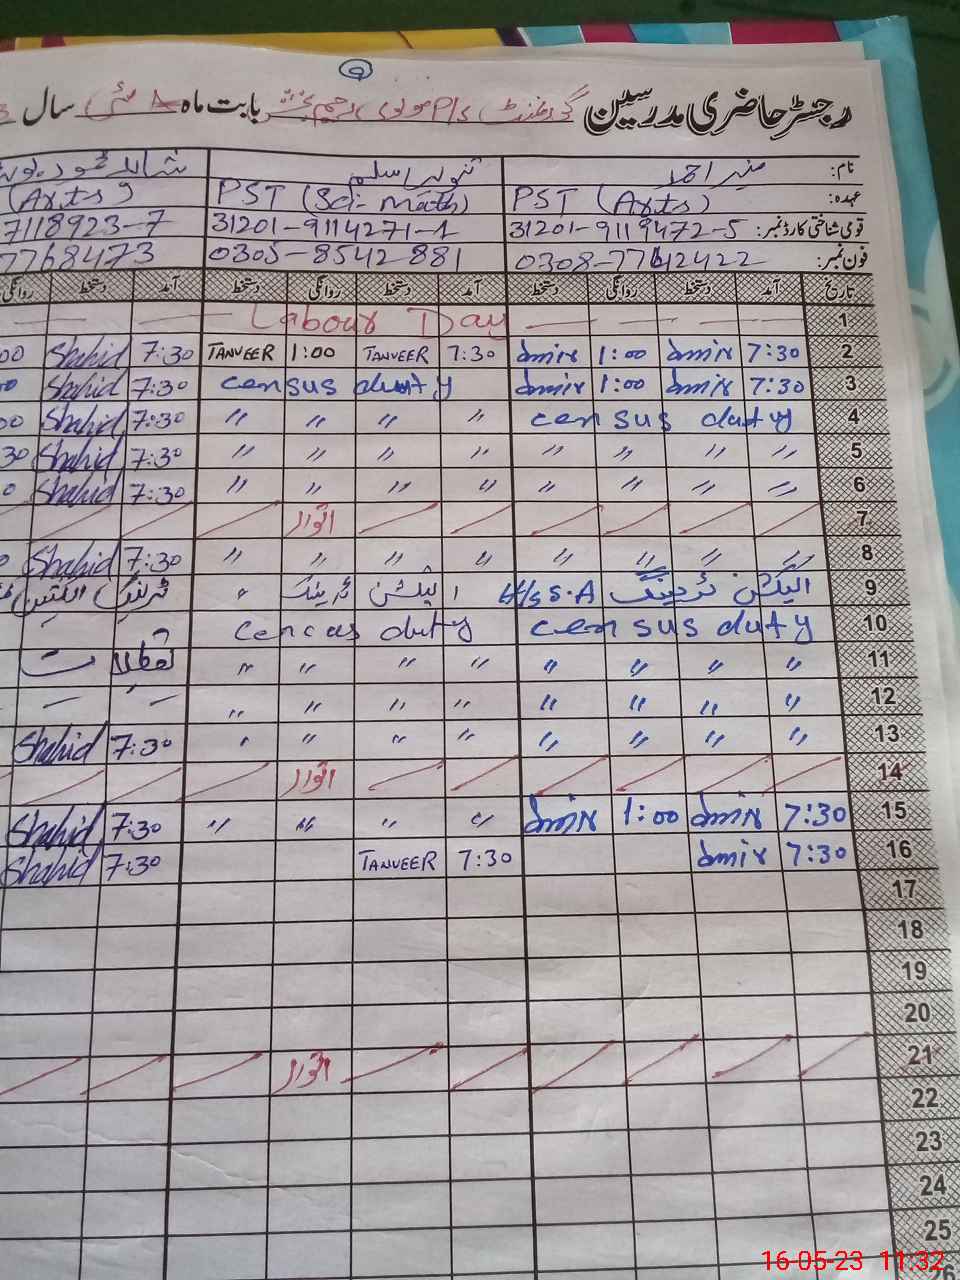 9
رجسٹر حاضری مدرسین گورنمنٹ P/S بابت ماہ مئی سال
نام: منیر احمد تنویر اسلم شاہد محمود
عہدہ: PST (Arts) PST (Sci-Math) (Arts)
قومی شناختی کارڈ نمبر: 31201-9119472-5 31201-9114271-1 7118923-7
فون نمبر: 0308-7762422 0305-8542881 7768473
تاریخ آمد دستخط روانگی دستخط آمد دستخط روانگی دستخط آمد دستخط روانگی
1 Labour Day
2 7:30 Amir 1:00 Amir 7:30 TANVEER 1:00 TANVEER 7:30 Shahid 00
3 7:30 Amir 1:00 Amir census duty 7:30 Shahid 0
4 census duty " " " " 7:30 Shahid 00
5 " " " " " " " " 7:30 Shahid 30
6 " " " " " " " " 7:30 Shahid 0
7 اتوار
8 " " " " " " " " 7:30 Shahid 0
9 الیکشن ٹریننگ H/S S.A الیکشن ٹریننگ " ٹریننگ الیکشن
10 census duty Cencus duty
11 " " " " " " " " تعطیلات
12 " " " " " " " " — —
13 " " " " " " " " 7:30 Shahid
14 اتوار
15 7:30 Amir 1:00 Amir " " " " 7:30 Shahid
16 7:30 Amir 7:30 TANVEER 7:30 Shahid
17
18
19
20
21 اتوار
22
23
24
25
26
16-05-23 11:32